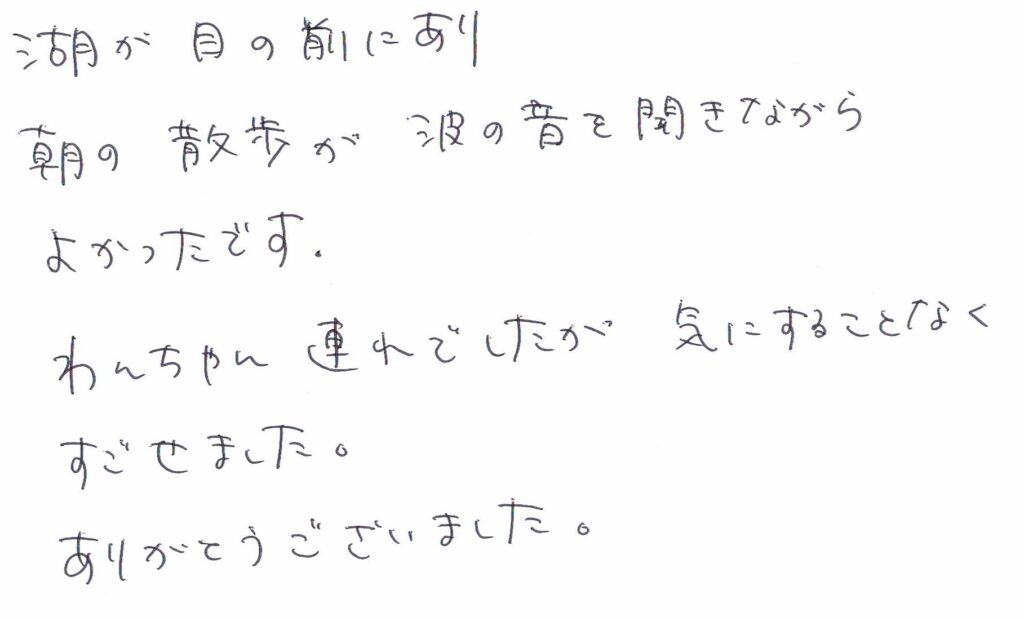 湖が 目の前にあり
朝の 散歩が 波の音を聞きながら
よかったです.
わんちゃん連れでしたが 気にすることなく
すごせました。
ありがとうございました。